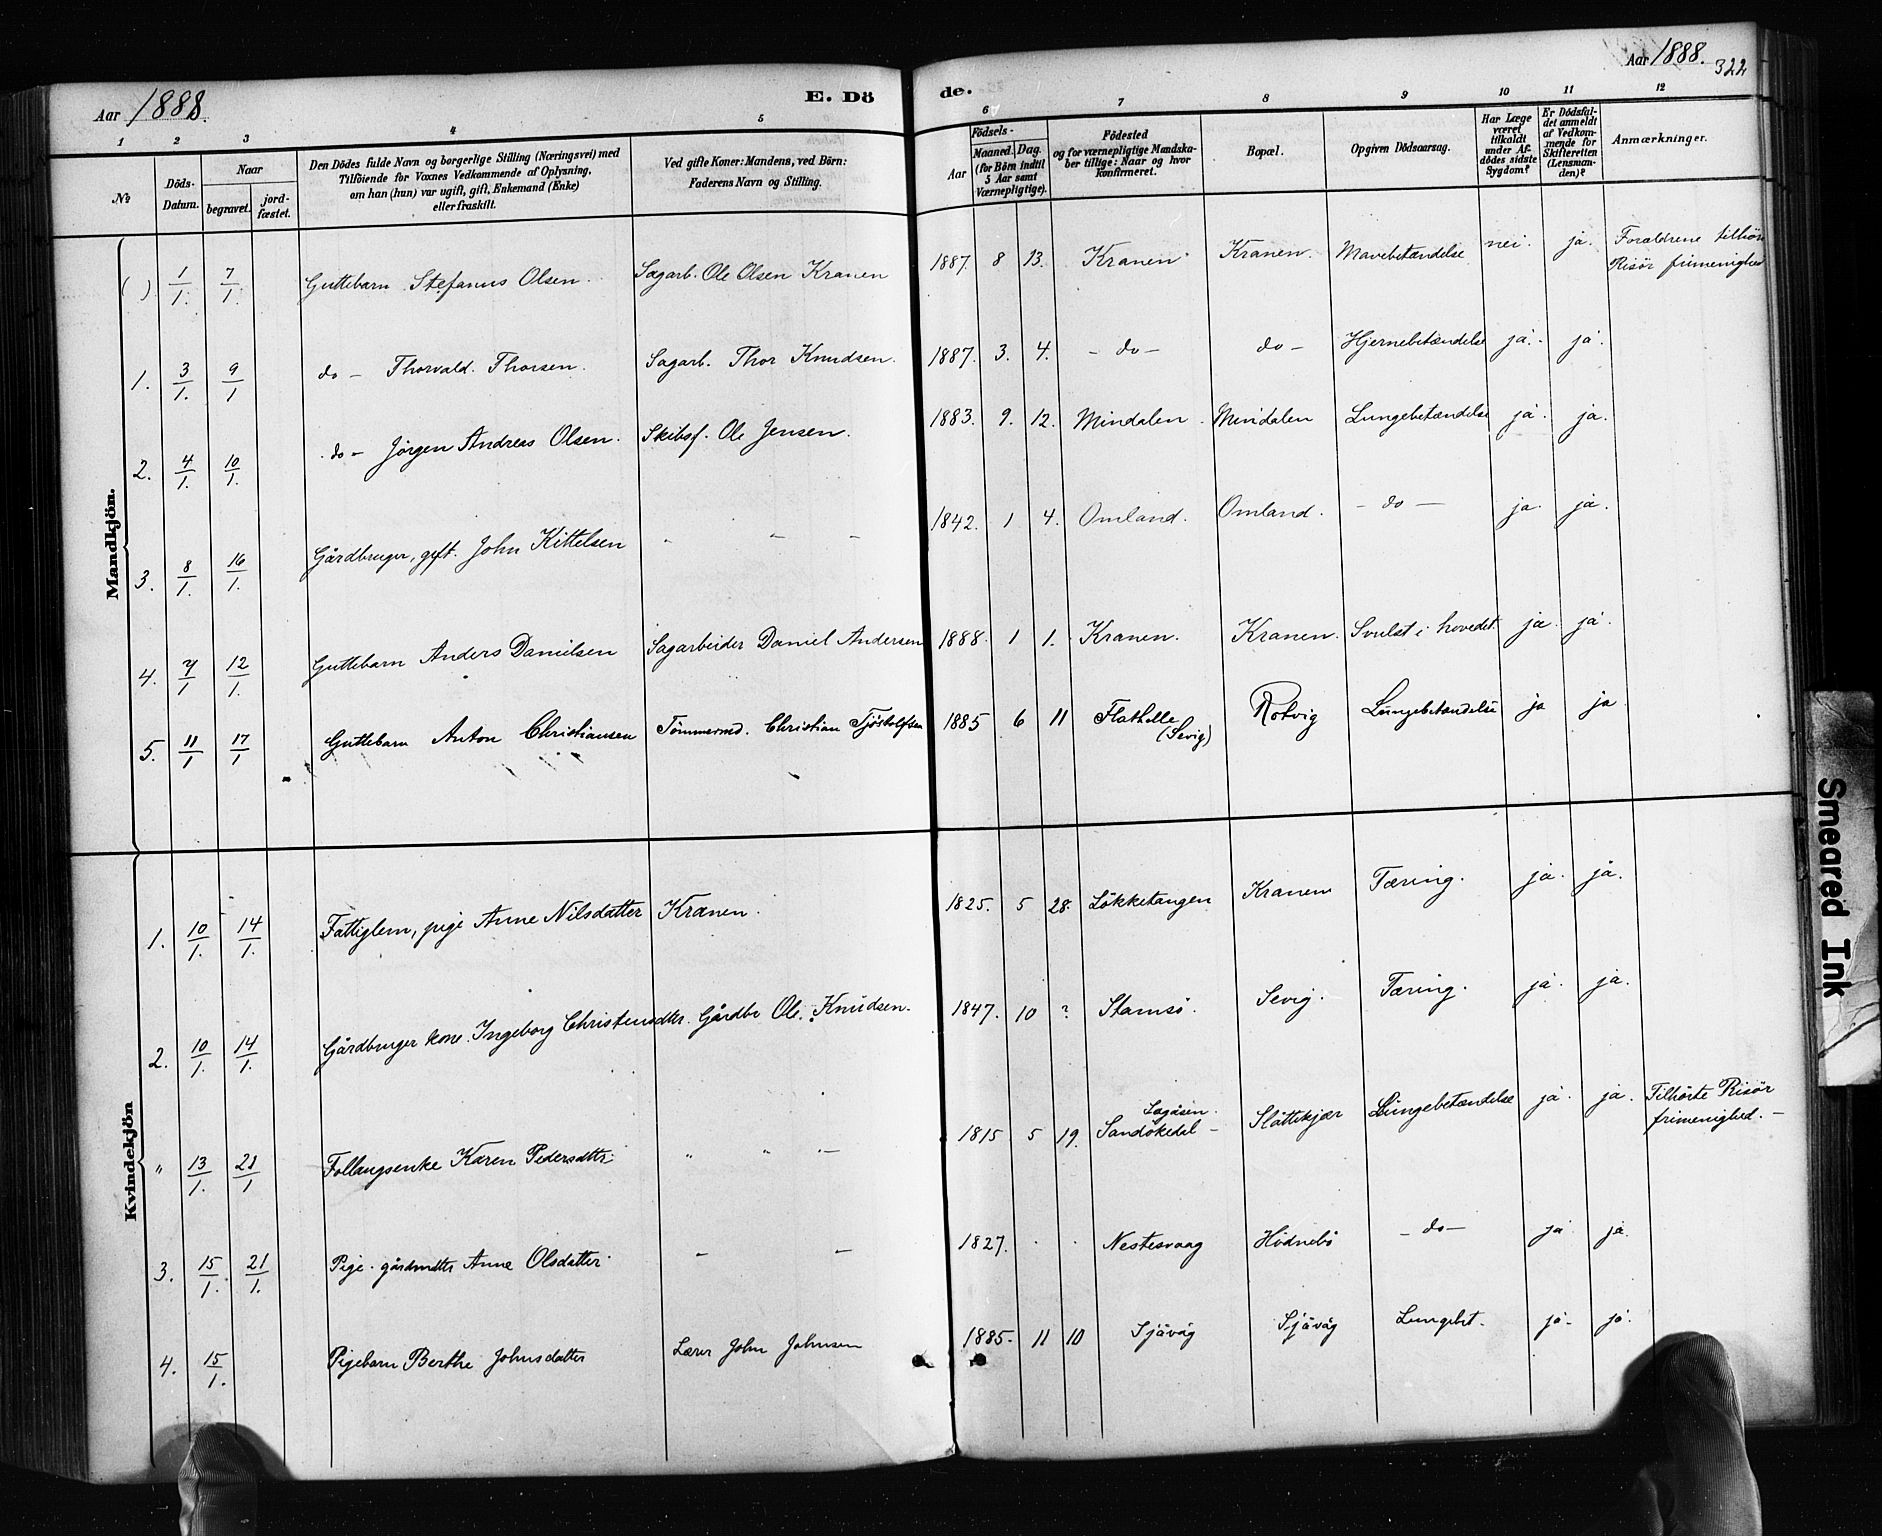 Aar 1888.
E. Dö
1 2 3 4 5
№
Döds-Datum.
Naar
begravet.
jord-fæstet.
Den Dödes fulde Navn og borgerlige Stilling (Næringsvei) med
Tilföiende for Voxnes Vedkommende af Oplysning,
om han (hun) var ugift, gift, Enkemand (Enke)
eller fraskilt.
Ved gifte Koner: Mandens, ved Börn:
Faderens Navn og Stilling.
Mandkjön.
( ). 1/1. 7/1. Guttebarn Stefanus Olsen. Sagarb. Ole Olsen Kranen
1. 3/1. 9/1 do — Thorvald Thorsen. Sagarb. Thor Knudsen.
2. 4/1. 10/1. do — Jörgen Andreas Olsen. Skibsf. Ole Jensen.
3. 8/1. 16/1. Gårdbruger, gift. John Kittelsen - - -
4. 7/1 12/1. Guttebarn Anders Danielsen Sagarbeider Daniel Andersen
5. 11/1 17/1 Guttebarn Anton Christiansen Tömmermd. Christian Tjöstolfsen
Kvindekjön
1. 10/1. 14/1. Fattiglem, pige Anne Nilsdatter Kranen.
2. 10/1. 14/1. Gårdbruger kone. Ingeborg Christensdtr. Gårdbr Ole Knudsen.
" 13/1. 21/1 Follaugsenke Karen Pedersdttr. " " -
3. 15/1. 21/1. Pige. gårdmdttr Anne Olsdatter. - -
4. 15/1. Pigebarn Berthe Johnsdatter Lærer John Johnsen
Aar 1888. 322
de.
6 7 8 9 10 11 12
Födsels-
Aar
Maaned. Dag.
(for Börn indtil
5 Aar samt
Værnepligtige).
Födested
og for værnepligtige Mandska-
ber tillige: Naar og hvor
konfirmeret.
Bopæl.
Opgiven Dödsaarsag.
Har Læge
været
tilkaldt
under Af-
dödes sidste
Sygdom?
Er Dödsfal-
det anmeldt
af Vedkom-
mende for
Skifteretten
(Lensman-
den)?
Anmærkninger.
1887. 8 13. Kranen. Kranen. Mavebetændelse nei. ja. Forældrene tilhör
Risör frimenighed
1887. 3. 4. - do - do - Hjernebetændelse ja. ja.
1883. 9. 12. Mindalen. Mindalen Lungebetændelse ja. ja.
1842. 1 4. Omland. Omland. - do - ja. ja.
1888. 1 1. Kranen. Kranen. Svulst i hovedet. ja. ja.
1885 6 11 Flathelle
(Sevig) Rotvig Lungebetændelse ja ja
1825. 5 28. Lökketangen Kranen Tæring. ja. ja.
1847. 10 ? Stamsö. Sevig. Tæring. ja. ja.
1815 5 19. Lagåsen.
Sandökedal - Slåttekjær Lungebetændelse ja. ja. Tilhörte Risör
frimenighed. -
1827. . . Nestesvaag Hödnebö - do - ja ja.
1885. 11 10 Sjåvåg Sjåvåg Lungebet. ja. ja.
Smeared Ink